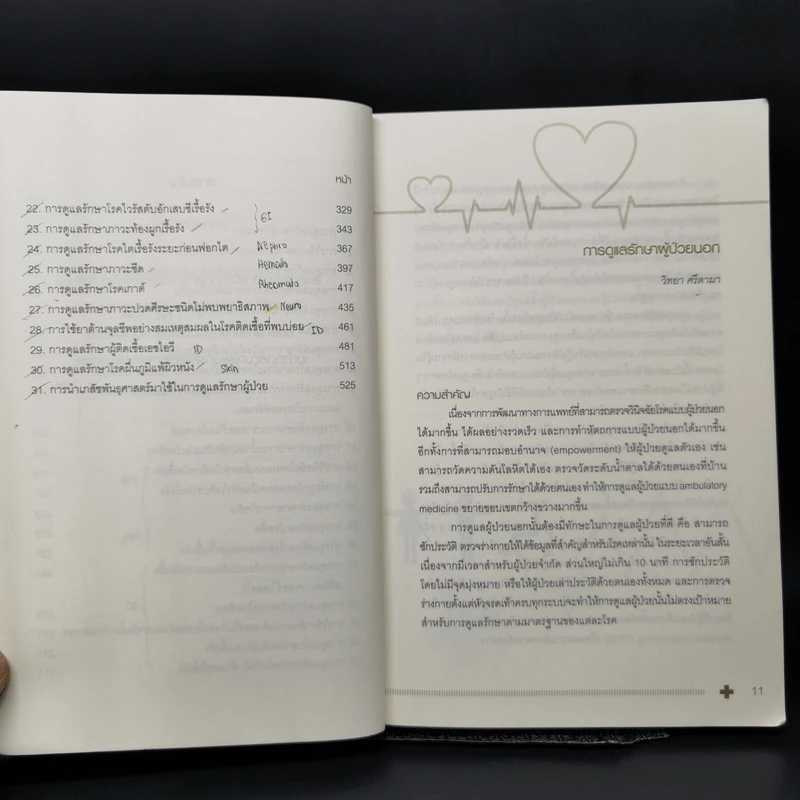 หน้า
22. การดูแลรักษาโรคไวรัสตับอักเสบซีเรื้อรัง 329
GI
23. การดูแลรักษาภาวะท้องผูกเรื้อรัง 343
24. การดูแลรักษาโรคไตเรื้อรังระยะก่อนฟอกไต Nephro 367
25. การดูแลรักษาภาวะซีด Hemato 397
26. การดูแลรักษาโรคเกาต์ Rheumato 417
27. การดูแลรักษาภาวะปวดศีรษะชนิดไม่พบพยาธิสภาพ Neuro 435
28. การใช้ยาต้านจุลชีพอย่างสมเหตุสมผลในโรคติดเชื้อที่พบบ่อย ID 461
29. การดูแลรักษาผู้ติดเชื้อเอชไอวี ID 481
30. การดูแลรักษาโรคผื่นภูมิแพ้ผิวหนัง Skin 513
31. การนำเภสัชพันธุศาสตร์มาใช้ในการดูแลรักษาผู้ป่วย 525
การดูแลรักษาผู้ป่วยนอก
วิทยา ศรีดามา
ความสำคัญ
เนื่องจากการพัฒนาทางการแพทย์ที่สามารถตรวจวินิจฉัยโรคแบบผู้ป่วยนอก
ได้มากขึ้น ได้ผลอย่างรวดเร็ว และการทำหัตถการแบบผู้ป่วยนอกได้มากขึ้น
อีกทั้งการที่สามารถมอบอำนาจ (empowerment) ให้ผู้ป่วยดูแลตัวเอง เช่น
สามารถวัดความดันโลหิตได้เอง ตรวจวัดระดับน้ำตาลได้ด้วยตนเองที่บ้าน
รวมถึงสามารถปรับการรักษาได้ด้วยตนเอง ทำให้การดูแลผู้ป่วยแบบ ambulatory
medicine ขยายขอบเขตกว้างขวางมากขึ้น
การดูแลผู้ป่วยนอกนั้นต้องมีทักษะในการดูแลผู้ป่วยที่ดี คือ สามารถ
ซักประวัติ ตรวจร่างกายให้ได้ข้อมูลที่สำคัญสำหรับโรคเหล่านั้น ในระยะเวลาอันสั้น
เนื่องจากมีเวลาสำหรับผู้ป่วยจำกัด ส่วนใหญ่ไม่เกิน 10 นาที การซักประวัติ
โดยไม่มีจุดมุ่งหมาย หรือให้ผู้ป่วยเล่าประวัติด้วยตนเองทั้งหมด และการตรวจ
ร่างกายตั้งแต่หัวจรดเท้าครบทุกระบบจะทำให้การดูแลผู้ป่วยนั้นไม่ตรงเป้าหมาย
สำหรับการดูแลรักษาตามมาตรฐานของแต่ละโรค
11